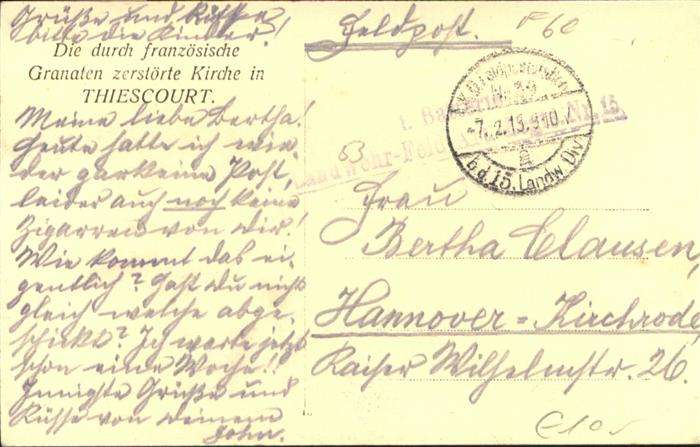 Grüße und Küsse
bitte die Kinder!
Die durch französische
Granaten zerstörte Kirche in
THIESCOURT.
Meine liebe Bertha!
Heute hatte ich wie-
der garkeine Post,
leider auch noch keine
Zigarren von Dir!
Wie kommt das ei-
gentlich? Hast Du nicht
gleich welche abge-
schickt? Ich warte jetzt
schon eine Woche!!
Innigste Grüße und
Küsse von Deinem
John.
Feldpost.
F 60
Nr. 15
Landwehr-Feld
-7.2.15.
b.d.15. Landw Div
53
Frau
Bertha Clausen,
Hannover=Kirchrode,
Kaiser Wilhelmstr. 26.